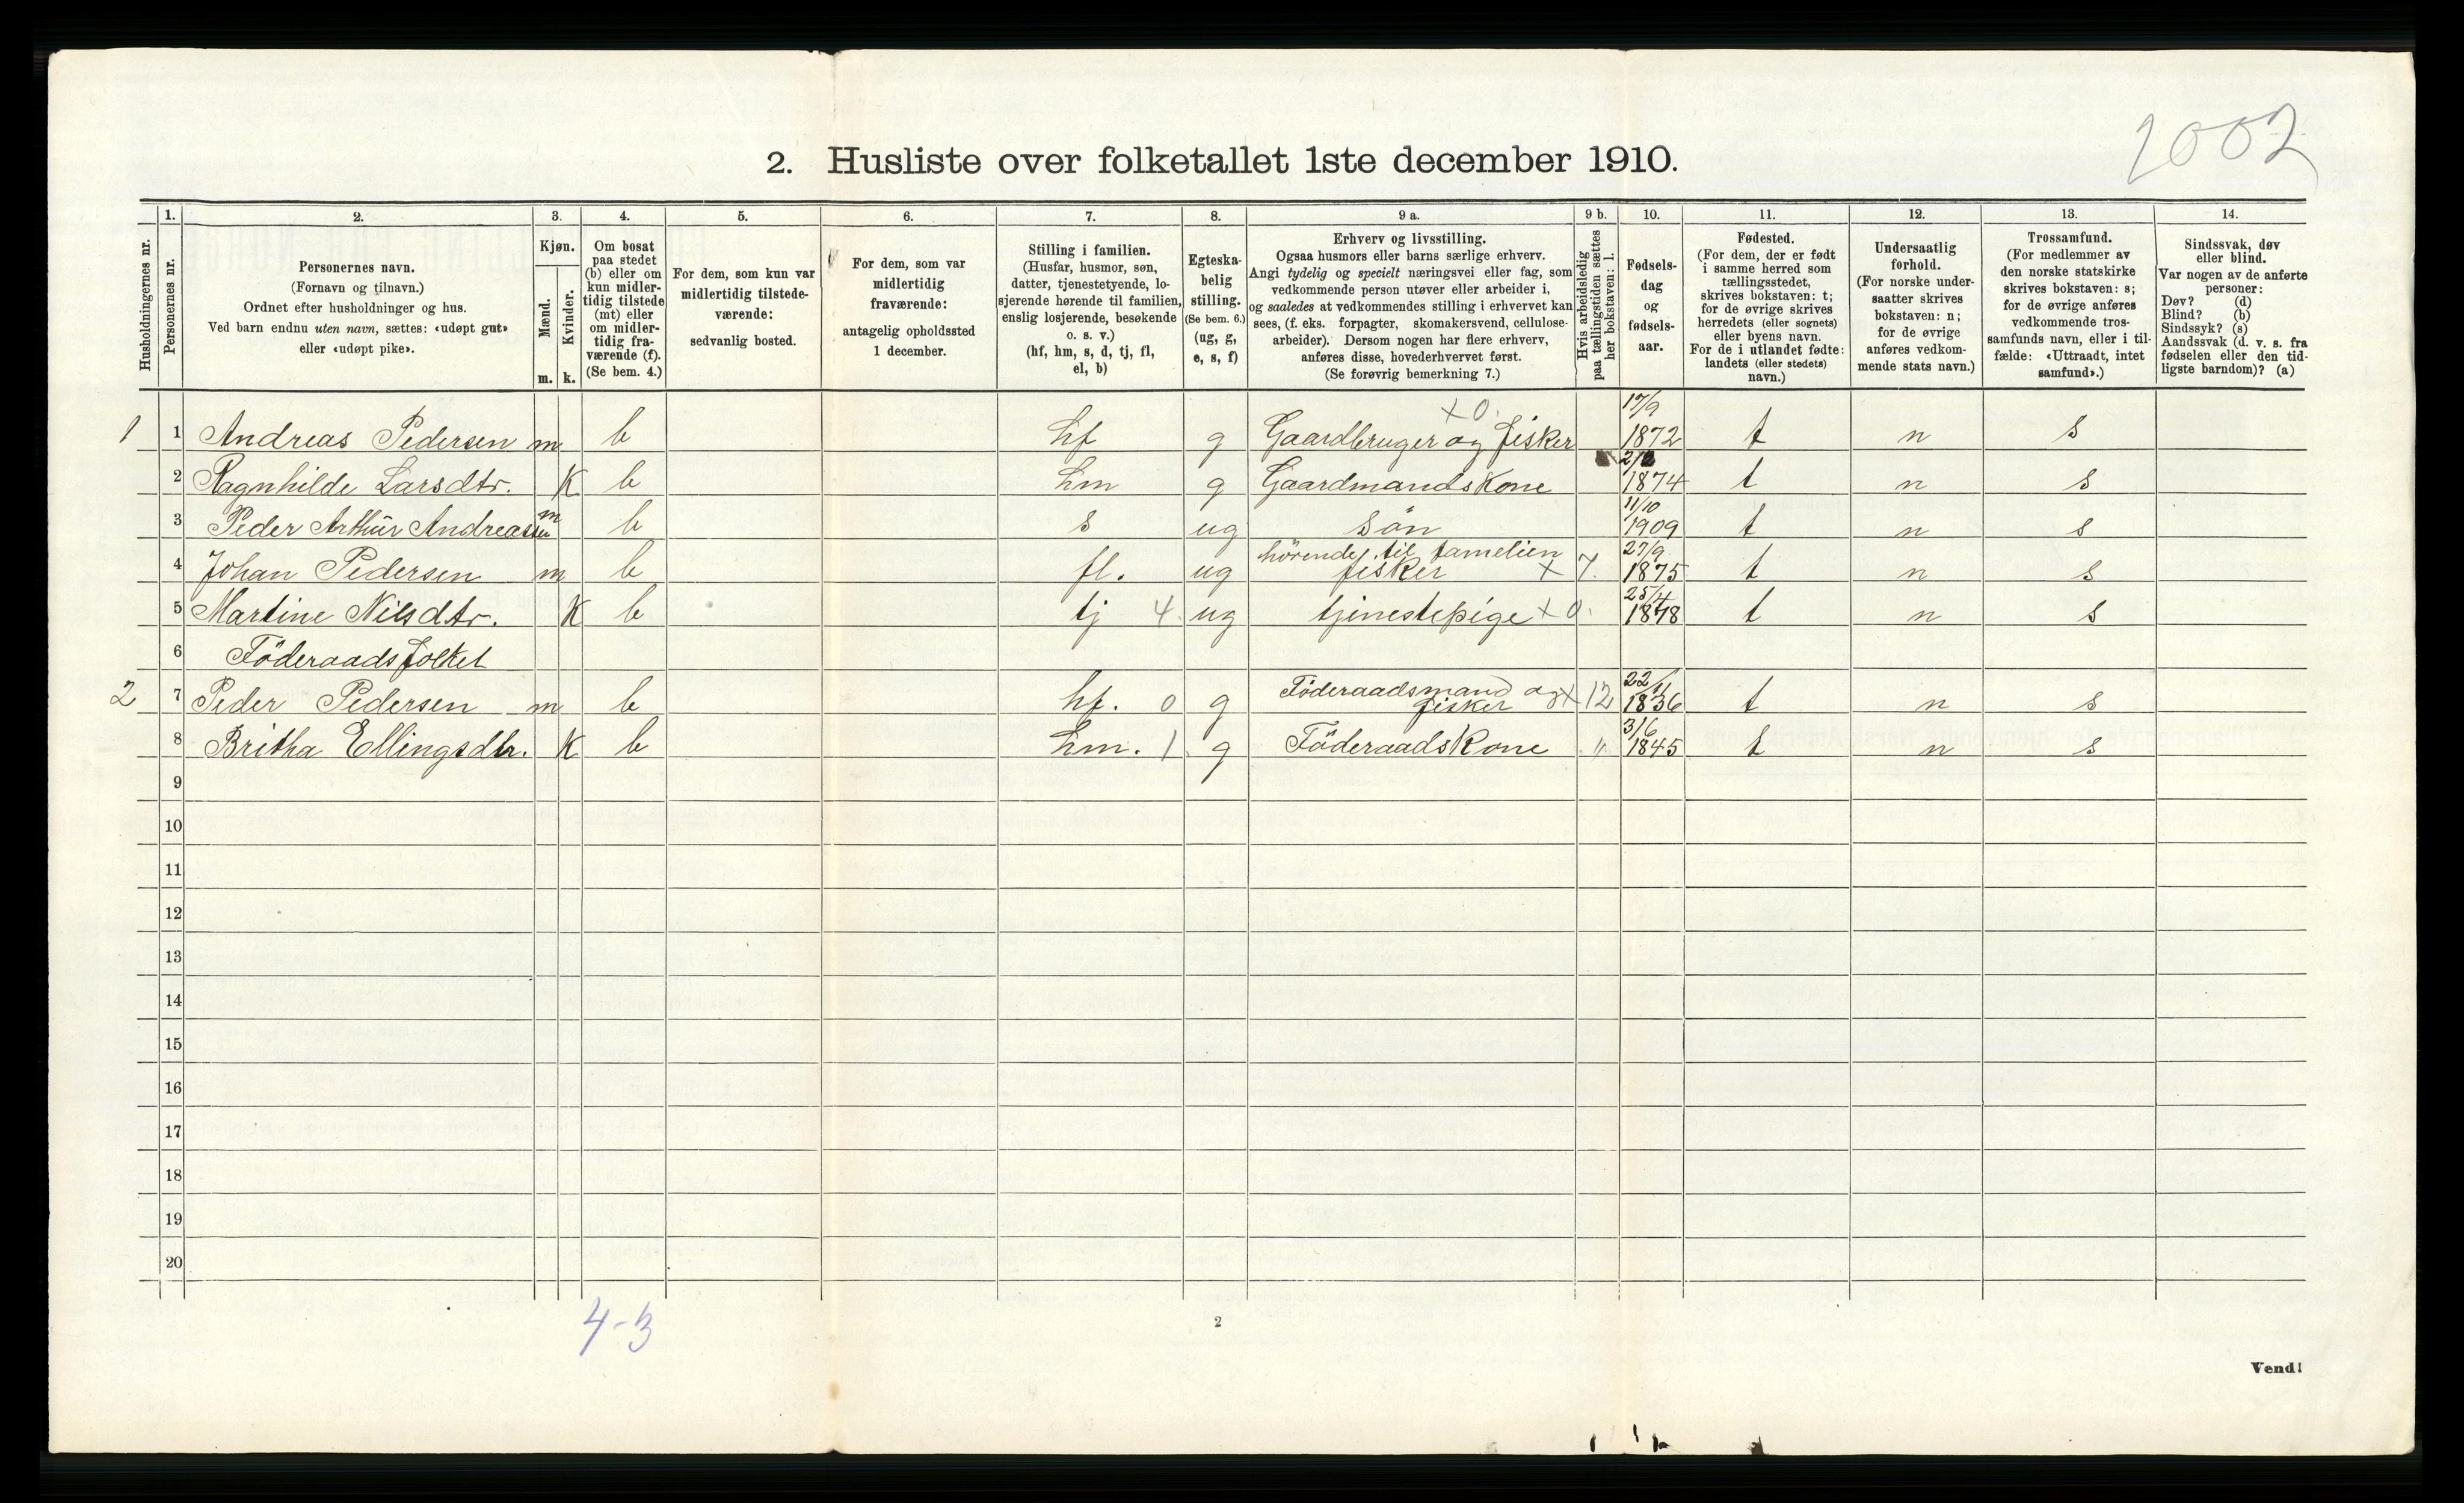 2002
2. Husliste over folketallet 1ste december 1910.
Husholdningernes nr.
1.
Personernes nr.
2.
Personernes navn.
(Fornavn og tilnavn.)
Ordnet efter husholdninger og hus.
Ved barn endnu uten navn, sættes: «udøpt gut»
eller «udøpt pike».
3.
Kjøn.
Mænd.
Kvinder.
m. k.
4.
Om bosat
paa stedet
(b) eller om
kun midler-
tidig tilstede
(mt) eller
om midler-
tidig fra-
værende (f).
(Se bem. 4.)
5.
For dem, som kun var
midlertidig tilstede-
værende:
sedvanlig bosted.
6.
For dem, som var
midlertidig
fraværende:
antagelig opholdssted
1 december.
7.
Stilling i familien.
(Husfar, husmor, søn,
datter, tjenestetyende, lo-
sjerende hørende til familien,
enslig losjerende, besøkende
o. s. v.)
(hf, hm, s, d, tj, fl,
el, b)
8.
Egteska-
belig
stilling.
(Se bem. 6.)
(ug, g,
e, s, f)
9 a.
Erhverv og livsstilling.
Ogsaa husmors eller barns særlige erhverv.
Angi tydelig og specielt næringsvei eller fag, som
vedkommende person utøver eller arbeider i,
og saaledes at vedkommendes stilling i erhvervet kan
sees, (f. eks. forpagter, skomakersvend, cellulose-
arbeider). Dersom nogen har flere erhverv,
anføres disse, hovederhvervet først.
(Se forøvrig bemerkning 7.)
9 b.
Hvis arbeidsledig
paa tællingstiden sættes
her bokstaven: l.
10.
Fødsels-
dag
og
fødsels-
aar.
11.
Fødested.
(For dem, der er født
i samme herred som
tællingsstedet,
skrives bokstaven: t;
for de øvrige skrives
herredets (eller sognets)
eller byens navn.
For de i utlandet fødte:
landets (eller stedets)
navn.)
12.
Undersaatlig
forhold.
(For norske under-
saatter skrives
bokstaven: n;
for de øvrige
anføres vedkom-
mende stats navn.)
13.
Trossamfund.
(For medlemmer av
den norske statskirke
skrives bokstaven: s;
for de øvrige anføres
vedkommende tros-
samfunds navn, eller i til-
fælde: «Uttraadt, intet
samfund».)
14.
Sindssvak, døv
eller blind.
Var nogen av de anførte
personer:
Døv? (d)
Blind? (b)
Sindssyk? (s)
Aandssvak (d. v. s. fra
fødselen eller den tid-
ligste barndom)? (a)
x 0. 17/9
1 1 Andreas Pedersen m b hf g Gaardbruger og fisker 1872 t n s
2 Ragnhilde Larsdtr. K b hm g Gaardmandskone 1874 t n s
3 Peder Arthur Andreassen m b s ug sön 11/10 1909 t n s
hörende til familien 27/9
4 Johan Pedersen m b fl. ug fisker x 7. 1875 t n s
5 Martine Nilsdtr. K b tj 4. ug tjinestepige x 0. 25/4 t n s
6 Föderaadsfolket
2 7 Peder Pedersen m b hf. 0 g Föderaadsmand og x 12 22/11 1836 t n s
fisker
8 Britha Ellingsdtr. K b hm. 1 g Föderaadskone " 3/6 1845 t n s
9
10
11
12
13
14
15
16
17
18
19
20
4-3
2
Vend!